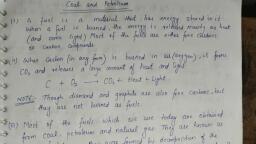 Coal and Petroleum
(1) A fuel is a material that has energy stored in it.
When a fuel is burned, the energy is released mainly as heat
(and some light) Most of the fuels are either free carbon
or carbon compounds
When Carbon (in any form) is burned in air (oxygen), it forms
CO2 and releases a large amount of heat and light
C + O2 → CO2 + Heat + Light
NOTE: Though diamond and graphite are also free carbons, but
they are not burned as fuels.
Most of the fuels which we use today are obtained
from coal, petroleum and natural gas. They are known as
were formed by decomposition of the